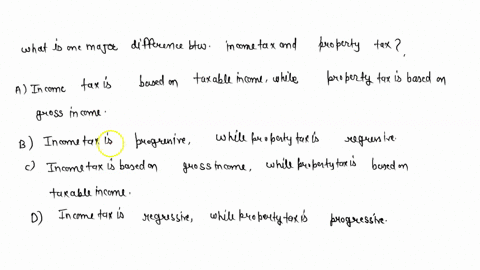 what is one major difference btw. income tax and property tax?
A) Income tax is based on taxable income, while property tax is based on
gross income.
B) Income tax is progressive, while property tax is regressive.
C) Income tax is based on gross income, while property tax is based on
taxable income.
D) Income tax is regressive, while property tax is progressive.